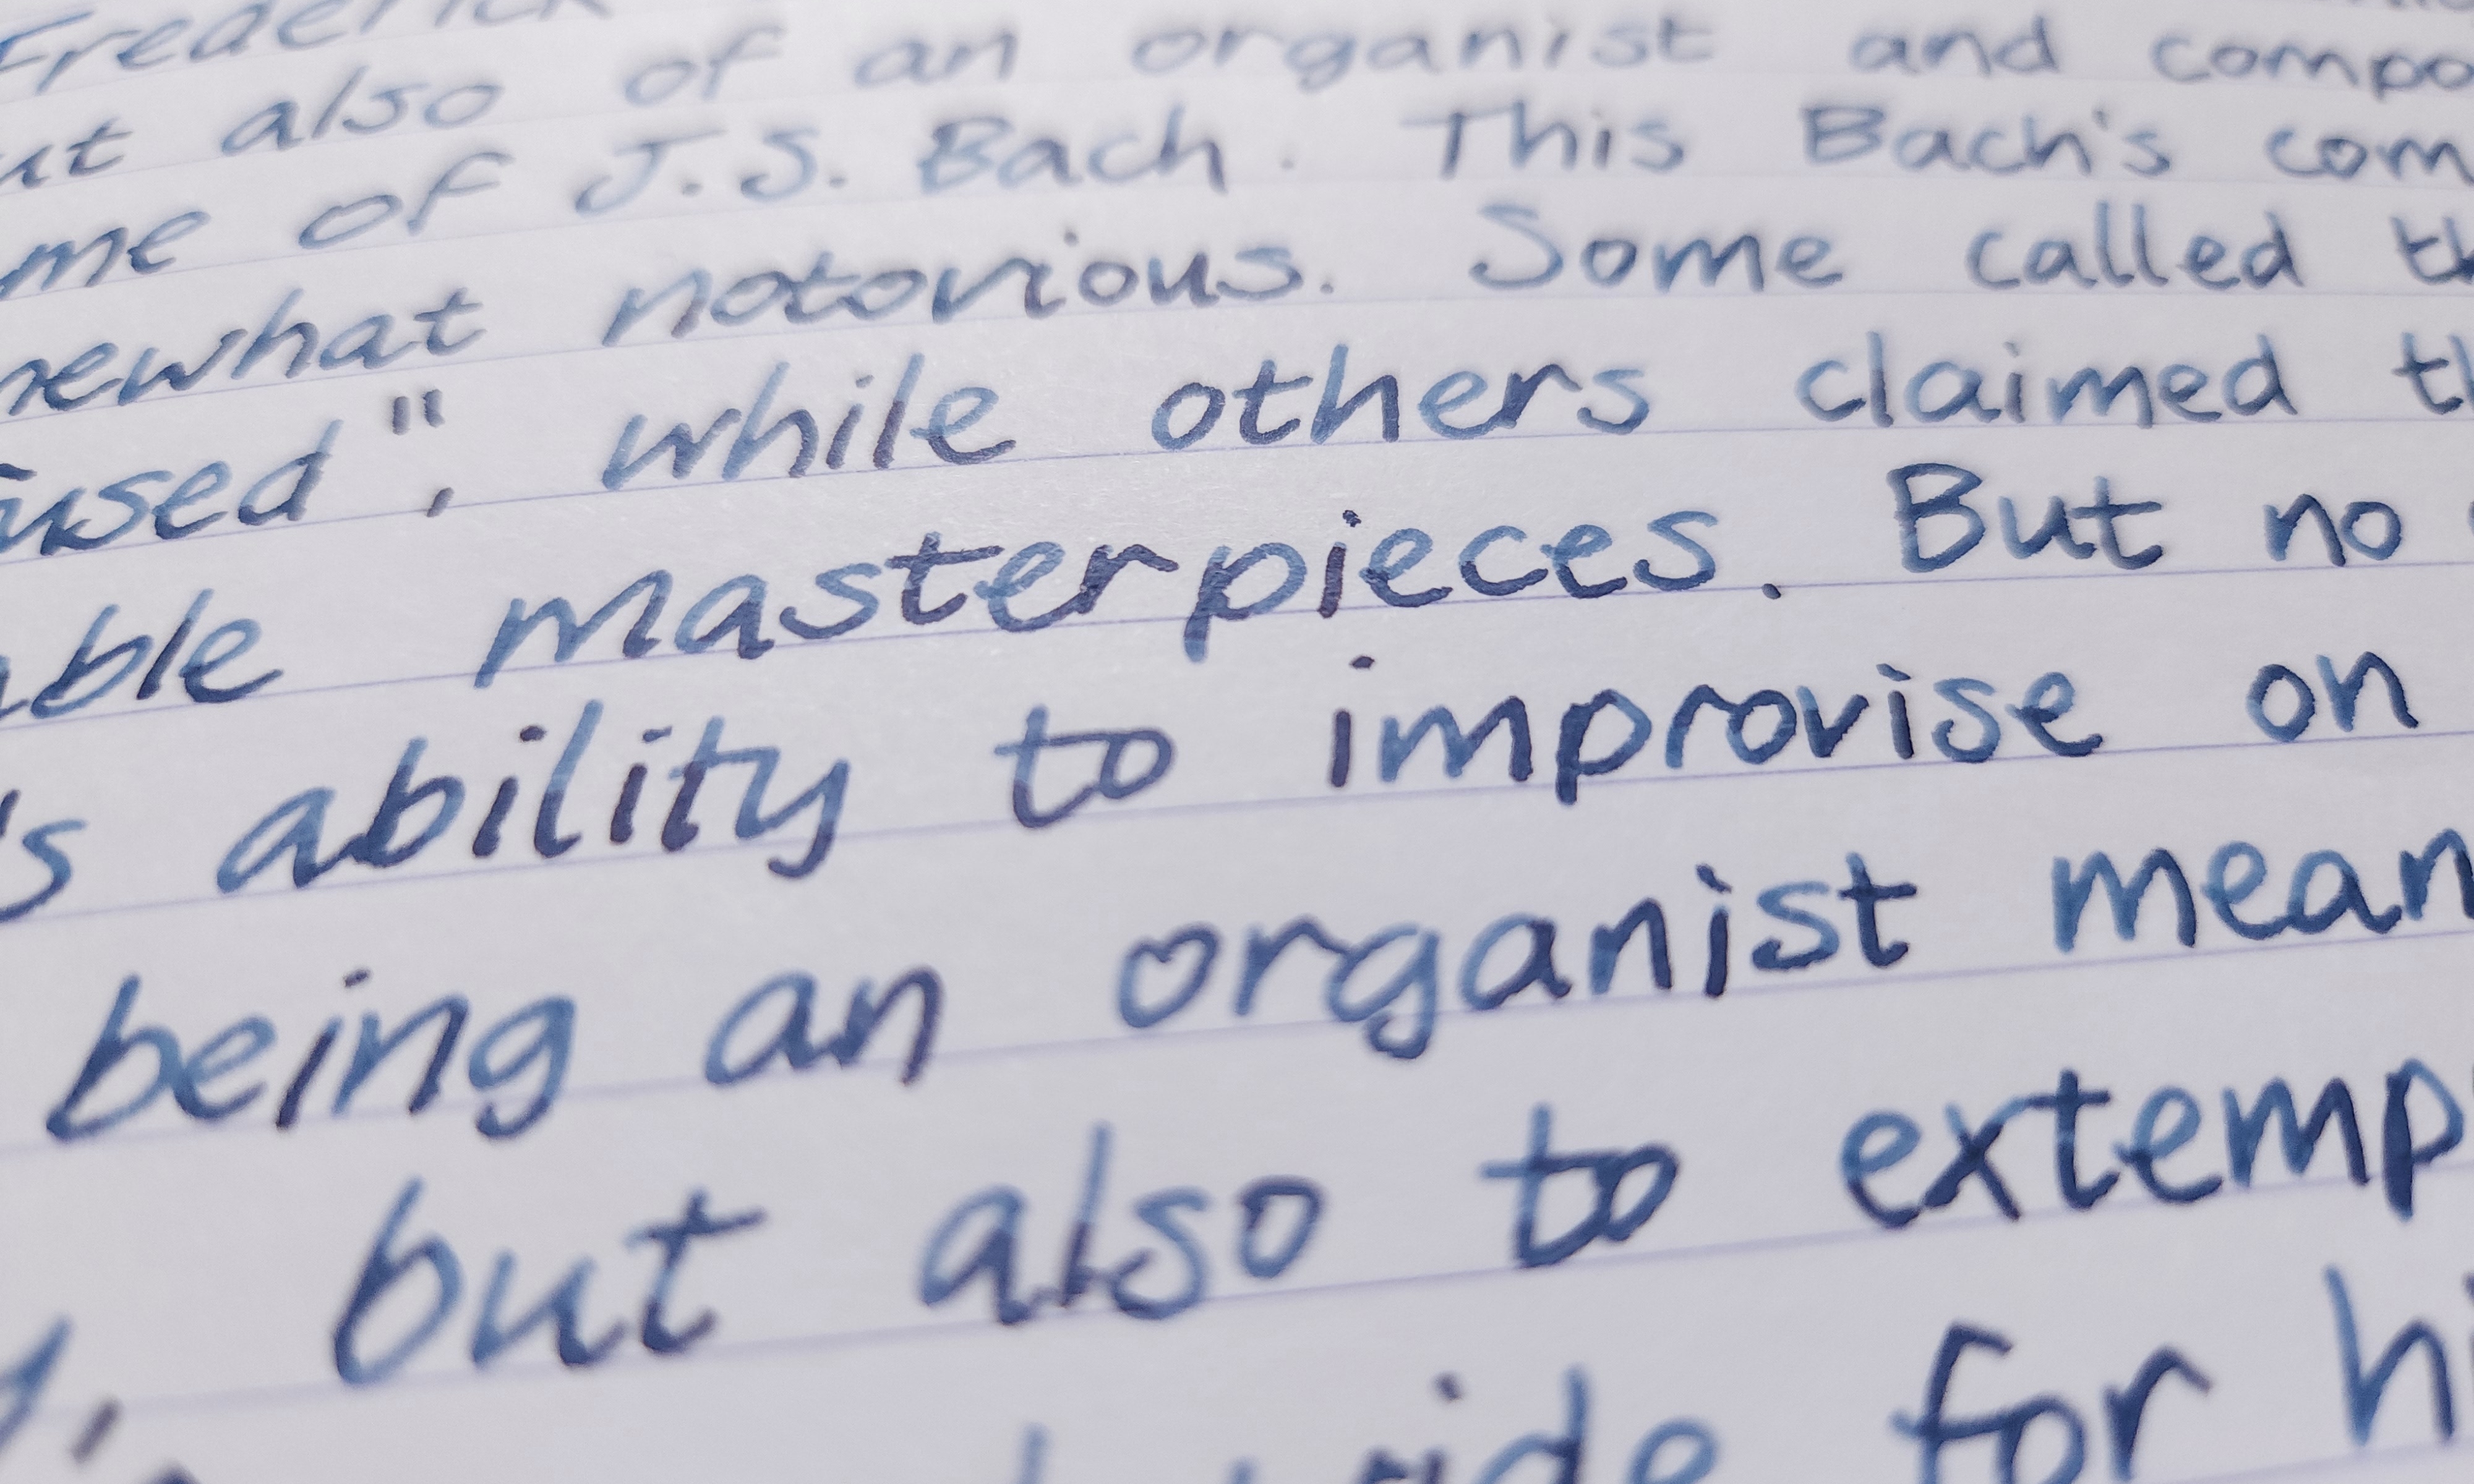 Frederick
ut also of an organist and compo
me of J.S. Bach. This Bach's com
mewhat notorious. Some called th
used", while others claimed th
ble masterpieces. But no
's ability to improvise on
being an organist mean
but also to extemp
for hi